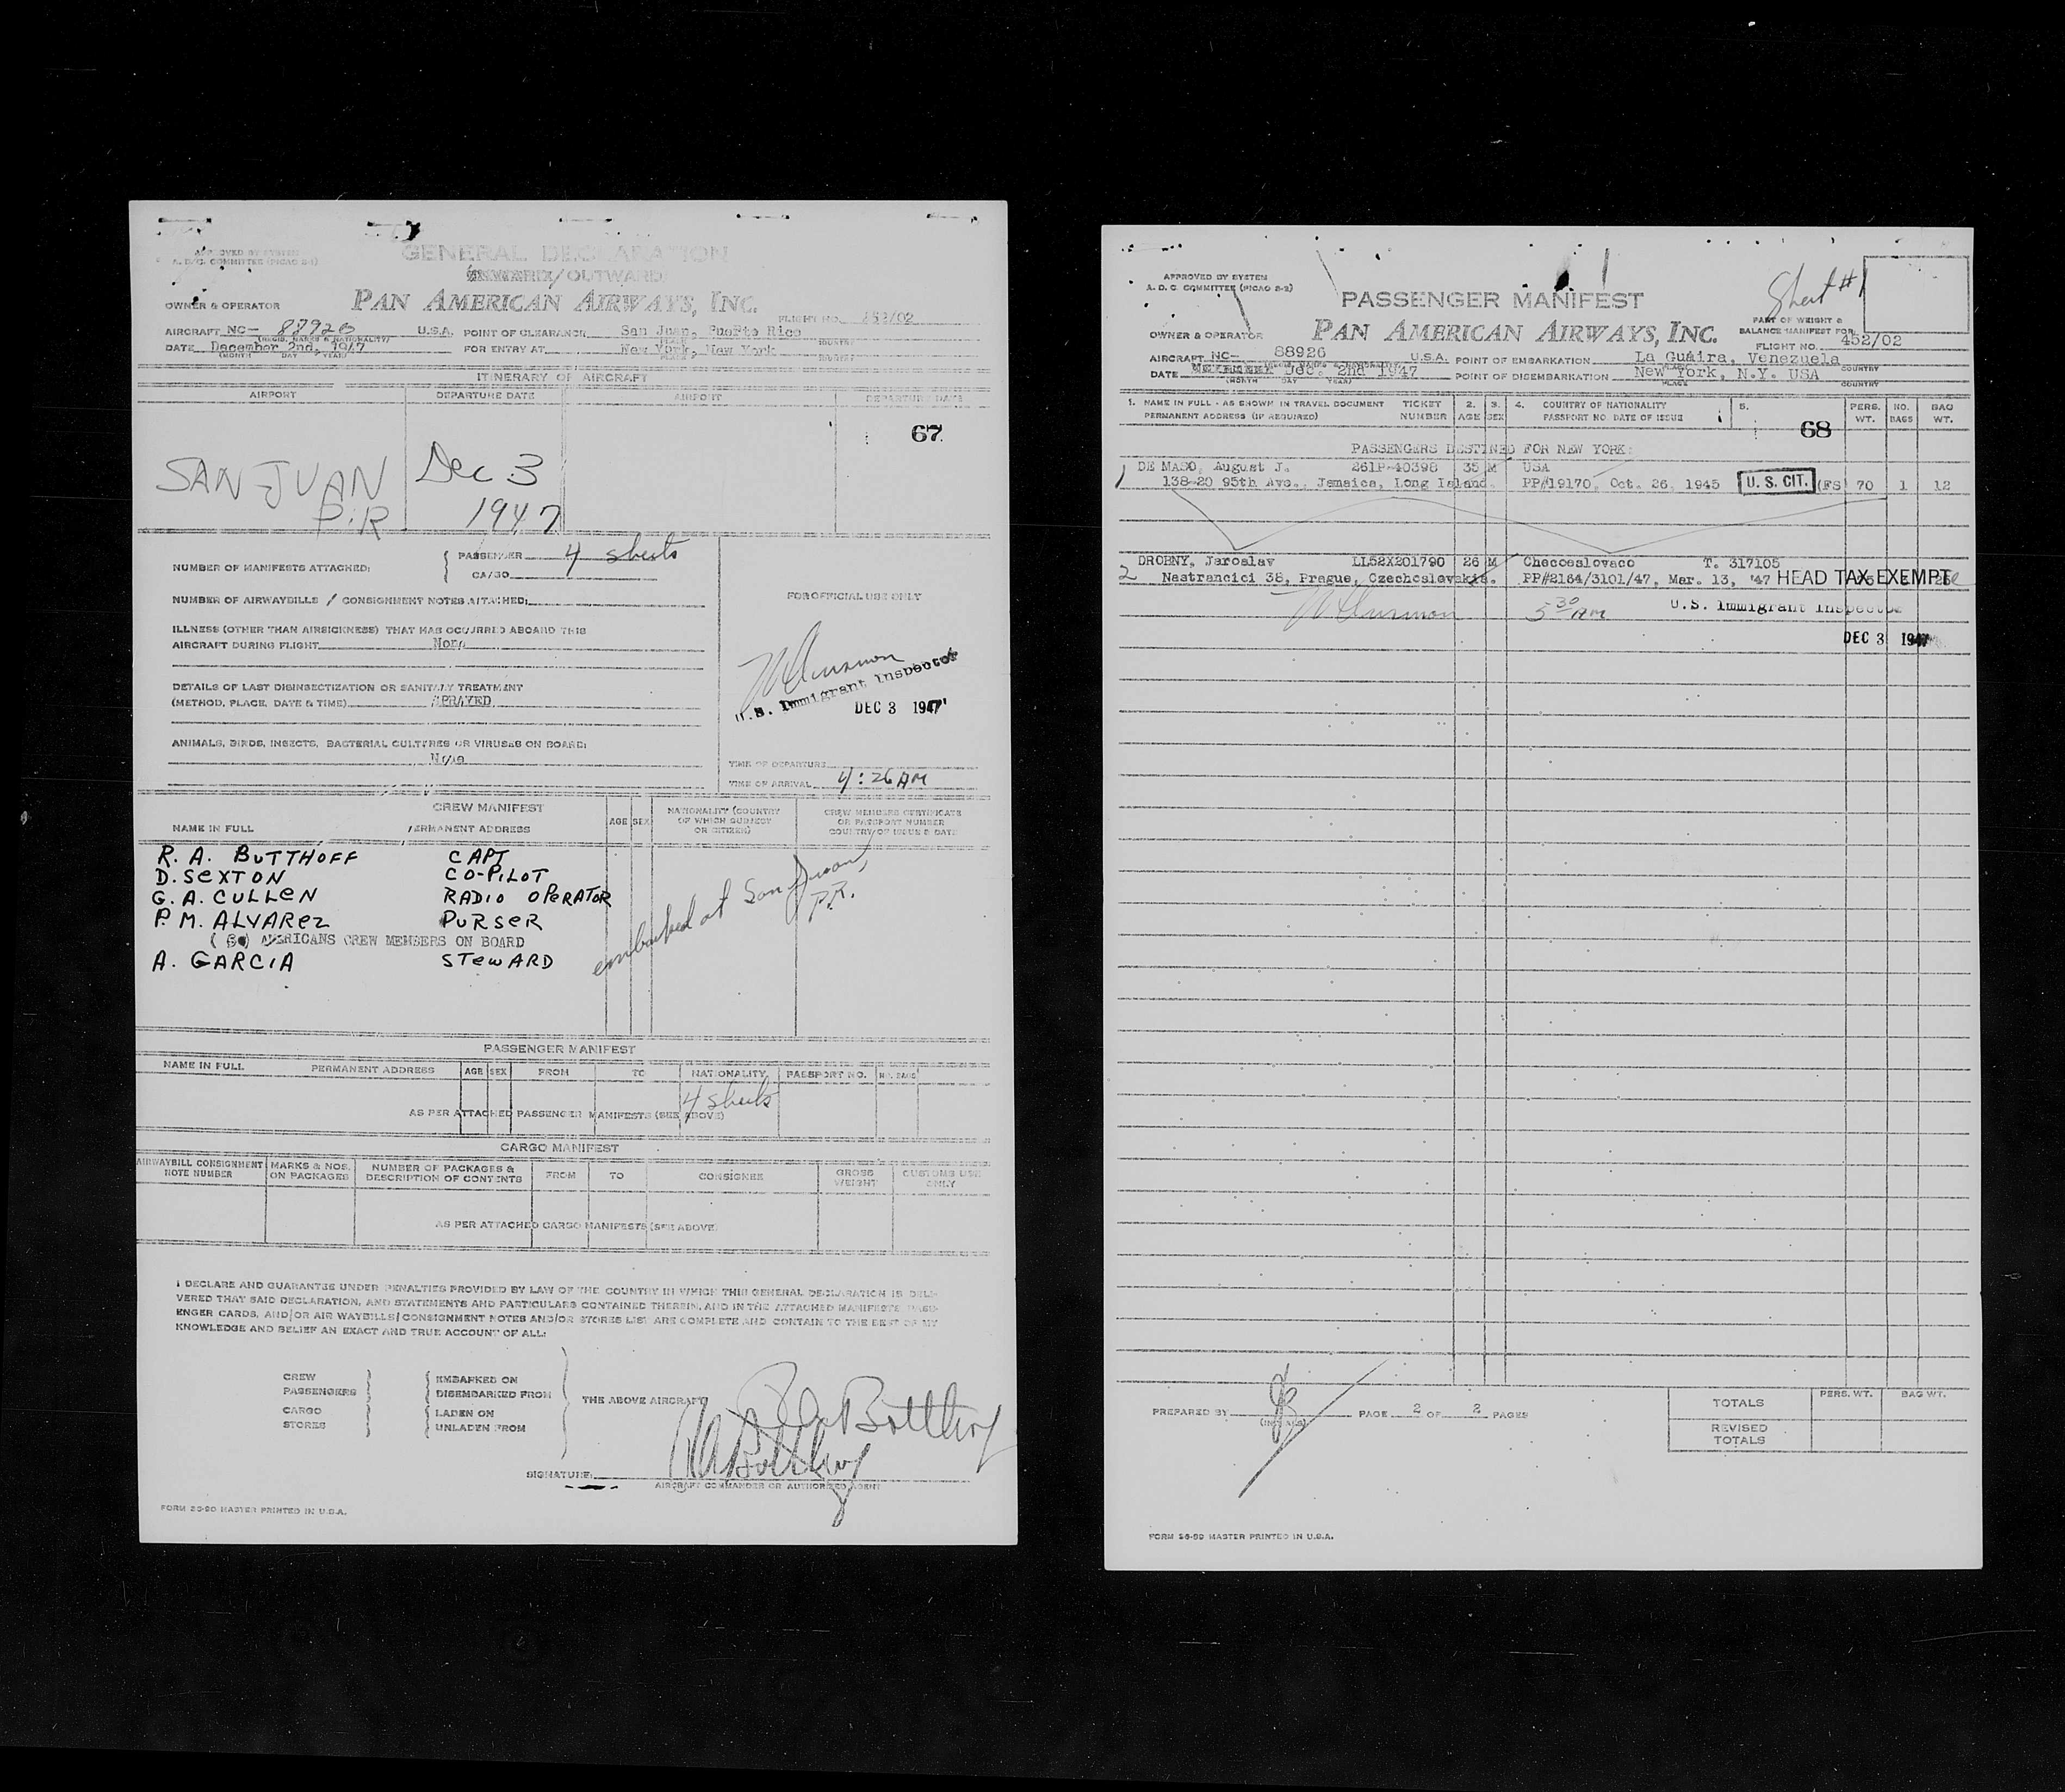 APPROVED BY SYSTEM
A. D. C. COMMITTEE (PICAO 2-1)
GENERAL DECLARATION
/ OUTWARD
OWNER & OPERATOR PAN AMERICAN AIRWAYS, INC.
FLIGHT NO. 452/02
AIRCRAFT NC- U.S.A. POINT OF CLEARANCE San Juan, Puerto Rico
(REGIS. MARKS & NATIONALITY) PLACE COUNTRY
DATE December 2nd, 1947 FOR ENTRY AT New York, New York
(MONTH DAY YEAR) PLACE COUNTRY
ITINERARY OF AIRCRAFT
AIRPORT DEPARTURE DATE AIRPORT DEPARTURE DATE
67
SAN JUAN Dec 3
P.R 1947
NUMBER OF MANIFESTS ATTACHED: PASSENGER 4 sheets
CARGO
NUMBER OF AIRWAYBILLS / CONSIGNMENT NOTES ATTACHED:
FOR OFFICIAL USE ONLY
ILLNESS (OTHER THAN AIRSICKNESS) THAT HAS OCCURRED ABOARD THIS
AIRCRAFT DURING FLIGHT None
DETAILS OF LAST DISINSECTIZATION OR SANITARY TREATMENT
(METHOD, PLACE, DATE & TIME) SPRAYED
U.S. Immigrant Inspector
DEC 3 1947
ANIMALS, BIRDS, INSECTS, BACTERIAL CULTURES OR VIRUSES ON BOARD:
None
TIME OF DEPARTURE
TIME OF ARRIVAL 4:26 AM
CREW MANIFEST
NAME IN FULL PERMANENT ADDRESS AGE SEX NATIONALITY (COUNTRY OF WHICH SUBJECT OR CITIZEN) CREW MEMBERS CERTIFICATE OR PASSPORT NUMBER COUNTRY OF ISSUE & DATE
R. A. BUTTHOFF CAPT
D. SEXTON CO-PILOT
G. A. CULLEN RADIO OPERATOR
P. M. ALVAREZ PURSER
AMERICANS CREW MEMBERS ON BOARD
A. GARCIA STEWARD
embarked at San Juan, P.R.
PASSENGER MANIFEST
NAME IN FULL PERMANENT ADDRESS AGE SEX FROM TO NATIONALITY PASSPORT NO. NO. BAGS
4 sheets
AS PER ATTACHED PASSENGER MANIFESTS (SEE ABOVE)
CARGO MANIFEST
AIRWAYBILL CONSIGNMENT NOTE NUMBER MARKS & NOS. ON PACKAGES NUMBER OF PACKAGES & DESCRIPTION OF CONTENTS FROM TO CONSIGNEE GROSS WEIGHT CUSTOMS USE ONLY
AS PER ATTACHED CARGO MANIFESTS (SEE ABOVE)
I DECLARE AND GUARANTEE UNDER PENALTIES PROVIDED BY LAW OF THE COUNTRY IN WHICH THIS GENERAL DECLARATION IS DELI-
VERED THAT SAID DECLARATION, AND STATEMENTS AND PARTICULARS CONTAINED THEREIN, AND IN THE ATTACHED MANIFESTS PASS-
ENGER CARDS, AND/OR AIR WAYBILLS/CONSIGNMENT NOTES AND/OR STORES LIST ARE COMPLETE AND CONTAIN TO THE BEST OF MY
KNOWLEDGE AND BELIEF AN EXACT AND TRUE ACCOUNT OF ALL:
CREW EMBARKED ON
PASSENGERS DISEMBARKED FROM
THE ABOVE AIRCRAFT
CARGO LADEN ON
STORES UNLADEN FROM
SIGNATURE:
AIRCRAFT COMMANDER OR AUTHORIZED AGENT
FORM 26-90 MASTER PRINTED IN U.S.A.
APPROVED BY SYSTEM
A. D. C. COMMITTEE (PICAO 2-2)
PASSENGER MANIFEST
Sheet #1
OWNER & OPERATOR PAN AMERICAN AIRWAYS, INC.
PART OF WEIGHT & BALANCE MANIFEST FOR
FLIGHT NO. 452/02
AIRCRAFT NC- 88926 U.S.A. POINT OF EMBARKATION La Guaira, Venezuela
PLACE COUNTRY
DATE Dec. 2nd 1947 POINT OF DISEMBARKATION New York, N.Y. USA
(MONTH DAY YEAR) PLACE COUNTRY
1. NAME IN FULL - AS SHOWN IN TRAVEL DOCUMENT TICKET 2. 3. 4. COUNTRY OF NATIONALITY 5. PERS. NO. BAG
PERMANENT ADDRESS (IF REQUIRED) NUMBER AGE SEX PASSPORT NO. DATE OF ISSUE WT. BAGS WT.
68
PASSENGERS DESTINED FOR NEW YORK:
1 DE MASO, August J. 261P-40398 35 M USA
138-20 95th Ave., Jamaica, Long Island. PP#19170, Oct. 26, 1945 U. S. CIT. (FS 70 1 12
2 DROBNY, Jaroslav LL52X201790 26 M Checoeslovaco T. 317105
Nastrancici 38, Prague, Czechoslovakia. PP#2164/3101/47, Mar. 13, '47 HEAD TAX EXEMPT
5 30 AM U.S. Immigrant Inspector
DEC 3 1947
PREPARED BY PAGE 2 OF 2 PAGES
(INITIALS)
PERS. WT. BAG WT.
TOTALS
REVISED TOTALS
FORM 26-99 MASTER PRINTED IN U.S.A.